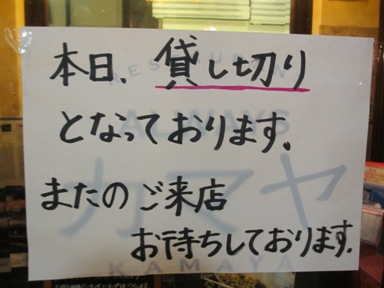 本日、貸し切り
となっております。
またのご来店
お待ちしております。
RESTAURANT
ALWAYS
カマヤ
KAMAYA